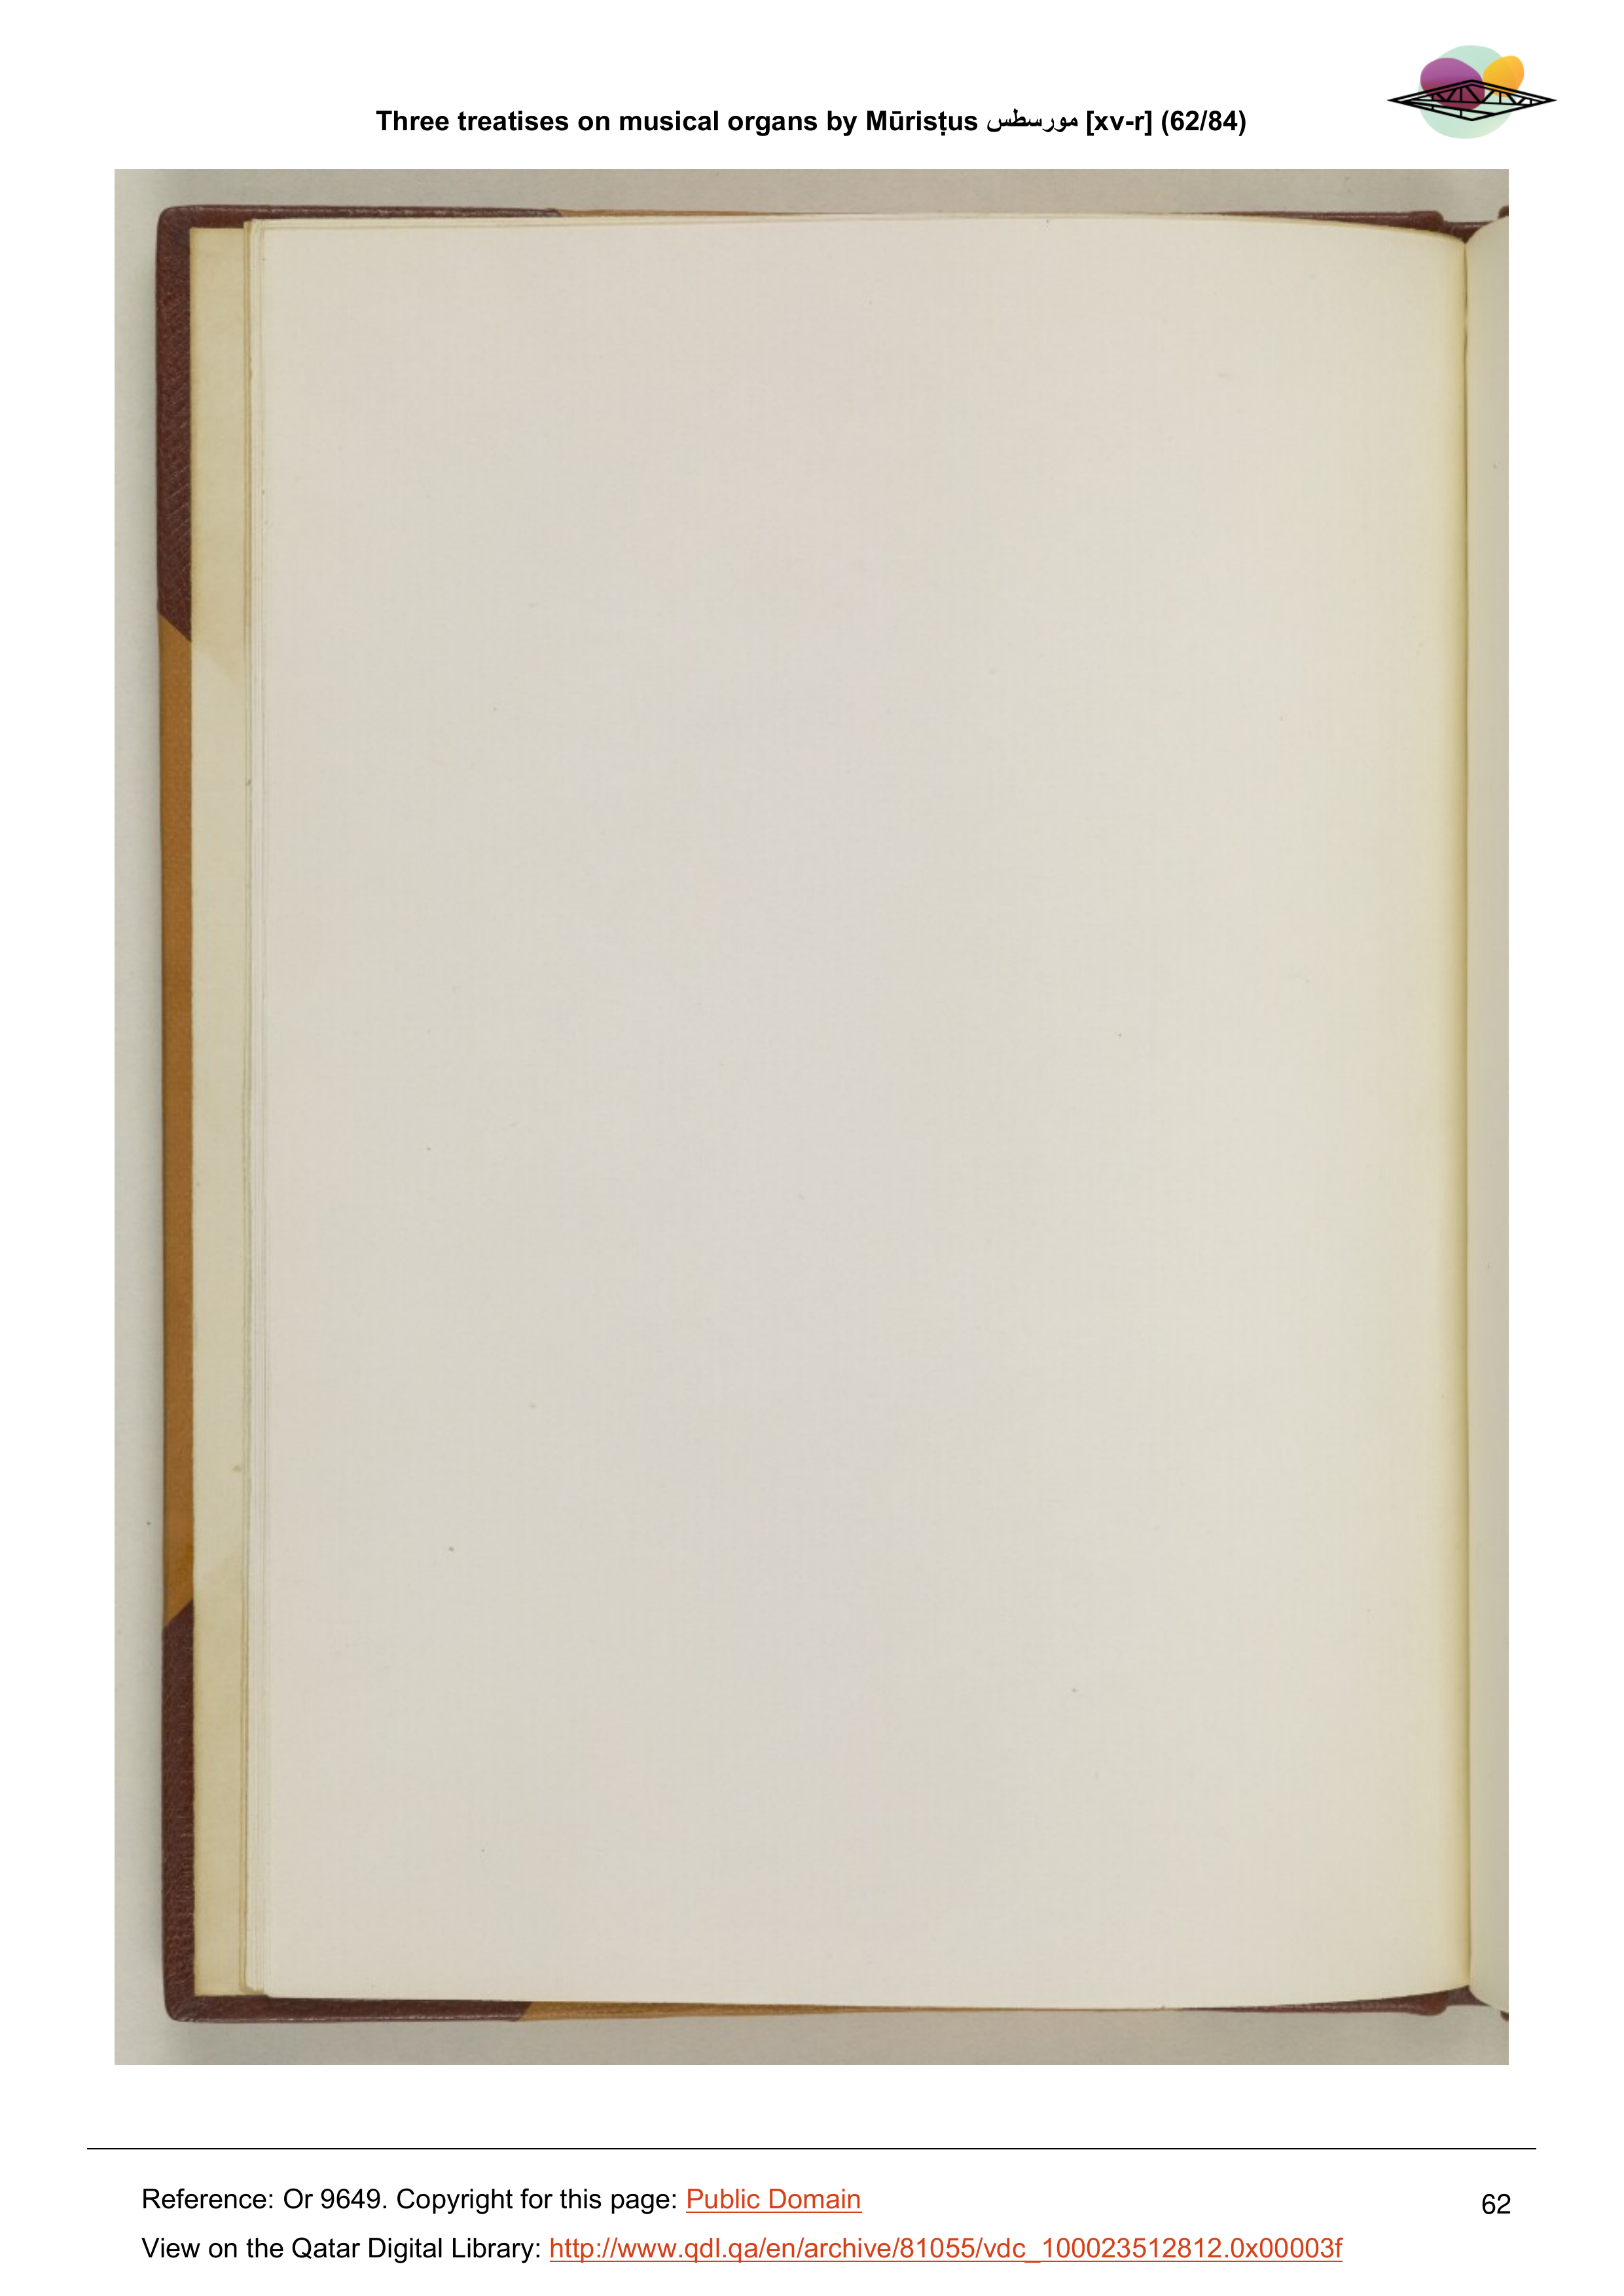 Three treatises on musical organs by Mūrisṭus مورسطس [xv-r] (62/84)
Reference: Or 9649. Copyright for this page: Public Domain
62
View on the Qatar Digital Library: http://www.qdl.qa/en/archive/81055/vdc_100023512812.0x00003f